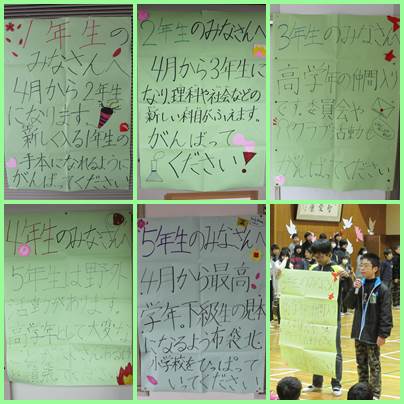 1年生の
みなさんへ
4月から2年生
になります。
新しく入る1年生の
手本になれるように
がんばってください!
2年生のみなさんへ
4月から3年生に
なり、理科や社会などの
新しい科目がふえます。
がんばって
ください!
3年生のみなさんへ
高学年の仲間入り
です。委員会や
クラブ活動も
がんばってください!
4年生のみなさんへ
5年生は野外
活動があります。
高学年として大変な
5年生のみなさんへ
4月から最高
学年。下級生の見本
になるよう布袋北
小学校をひっぱって
いってください!